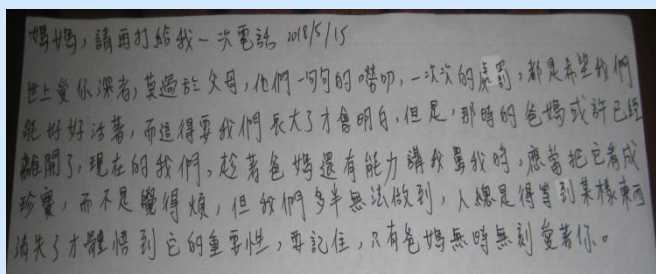 媽媽,請再打給我一次電話 2018/5/15
世上愛你深者,莫過於父母,他們一句句的嘮叨,一次次的處罰,都是希望我們
能好好活著,而這得要我們長大了才會明白,但是,那時的爸媽或許已經
離開了,現在的我們,趁著爸媽還有能力講我罵我時,應當把它看成
珍寶,而不是覺得煩,但我們多半無法做到,人總是得等到某樣東西
消失了才體悟到它的重要性,要記住,只有爸媽無時無刻愛著你。